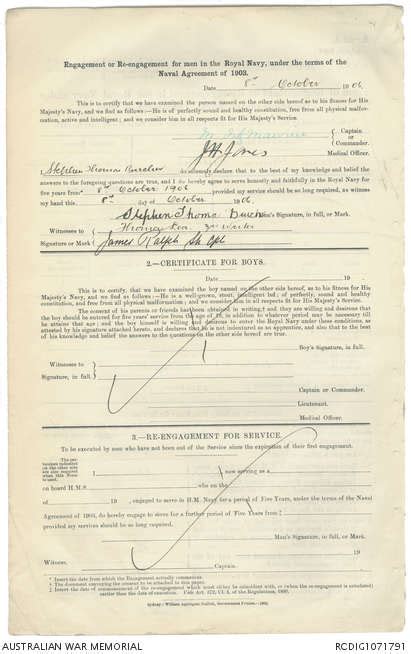 Engagement or Re-engagement for men in the Royal Navy, under the terms of the
Naval Agreement of 1903.
Date 8th October 1906.
This is to certify that we have examined the person named on the other side hereof as to his fitness for His
Majesty's Navy, and we find as follows:—He is of perfectly sound and healthy constitution, free from all physical malfor-
mation, active and intelligent; and we consider him in all respects fit for His Majesty's Service
Captain
or
Commander.
J H Jones
Medical Officer.
I Stephen Thomas do solemnly declare that to the best of my knowledge and belief the
answers to the foregoing questions are true, and I do hereby agree to serve honestly and faithfully in the Royal Navy for
five years from* 8th October 1906 provided my service should be so long required, as witness
my hand this 8th day of October 1906.
Stephen Thomas Man's Signature, in full, or Mark.
Witnesses to
Signature or Mark
James Ralph
2.—CERTIFICATE FOR BOYS.
Date 19
This is to certify, that we have examined the boy named on the other side hereof, as to his fitness for His
Majesty's Navy, and we find as follows:—He is a well-grown, stout, intelligent lad; of perfectly, sound and healthy
constitution, and free from all physical malformation; and we consider him in all respects fit for His Majesty's Service.
The consent of his parents or friends has been obtained in writing,† and they are willing and desirous that
the boy should be entered for five years' service from the age of 18, in addition to whatever period may be necessary till
he attains that age; and the boy himself is willing and desirous to enter the Royal Navy under these conditions, as
attested by his signature attached hereto, and declares that he is not indentured as an apprentice, and also that to the best
of his knowledge and belief the answers to the questions on the other side hereof are true.
Boy's Signature, in full.
Witnesses to
Signature, in full.
Captain or Commander.
Lieutenant.
Medical Officer.
3.—RE-ENGAGEMENT FOR SERVICE.
To be executed by men who have not been out of the Service since the expiration of their first engagement.
I now serving as a
on board H.M.S. who on the
of 19 , engaged to serve in H.M. Navy for a period of Five Years, under the terms of the Naval
Agreement of 1903, do hereby engage to serve for a further period of Five Years from‡
provided my services should be so long required.
Man's Signature, in full, or Mark.
19
Witness.
Captain.
* Insert the date from which the Engagement actually commences.
† The document conveying the consent to be attached to this paper.
AUSTRALIAN WAR MEMORIAL
RCDIG1071791